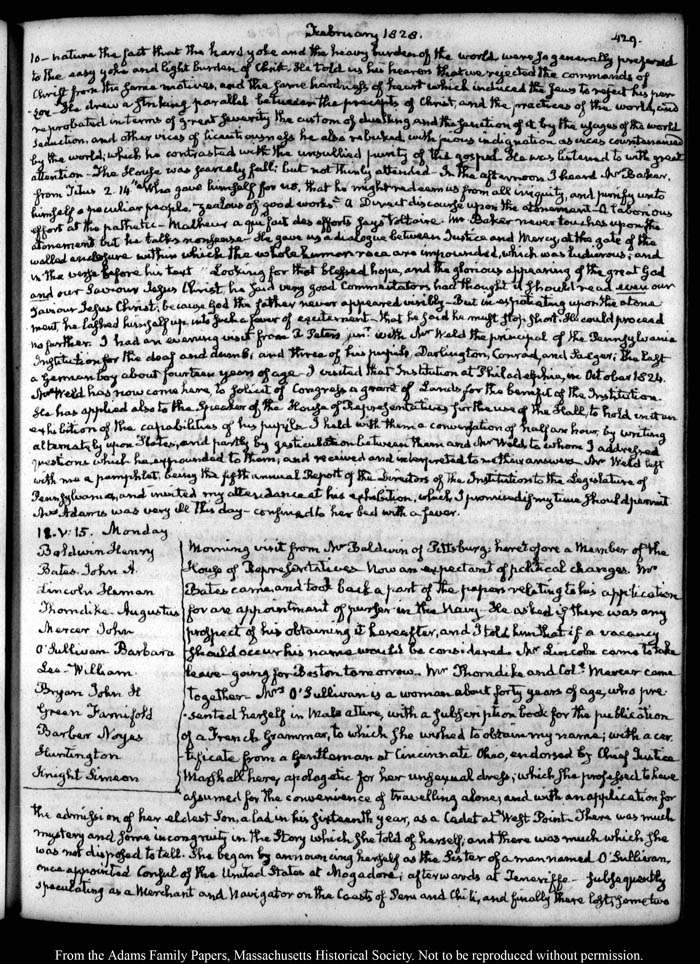 February 1828.
429.
to – nature the fact that the hard yoke and the heavy burden of the world were so generally preferred
to the easy yoke and light burden of Christ. He told us his hearers that we rejected the commands of
Christ from the same motives, and the same hardness of heart which induced the Jews to reject his per
son – He drew a striking parallel between the precepts of Christ, and the practices of the world, and
reprobated in terms of great severity the custom of duelling and the sanction of it by the usages of the world
Seduction and other vices of licentiousness he also rebuked with pious indignation as vices countenanced
by the world; which he contrasted with the unsullied purity of the gospel. He was listened to with great
attention – The House was scarcely full; but not thinly attended – In the afternoon I heard Mr Baker.
from Titus 2. 14. "Who gave himself for us, that he might redeem us from all iniquity, and purify unto
himself a peculiar people, zealous of good works" – A Direct discourse upon the atonement – A laborious
effort at the pathetic – Malheur a qui fait des efforts says Voltaire. Mr Baker never touches upon the
atonement but he talks nonsense – He gave us a dialogue between Justice and Mercy, at the gate of the
walled enclosure within which the whole human race are impounded, which was ludicrous; and
in the verse before his text "Looking for that blessed hope, and the glorious appearing of the great God
and our Saviour Jesus Christ, he said very good Commentators had thought it should read even our
Saviour Jesus Christ; because God the father never appeared visibly – But in expatiating upon the atone
ment, he lashed himself up into such a fever of excitement – that he said he must stop short. He could proceed
no further. I had an evening visit from R Peters junr. with Mr Weld the principal of the Pennsylvania
Institution for the deaf and dumb; and three of his pupils, Darlington, Conrad, and The last
a German boy about fourteen years of age – I visited that Institution at Philadelphia, in October 1824.
Mr Weld has now come here, to solicit of Congress a grant of Lands, for the benefit of the Institution.
He has applied also to the Speaker of the House of Representatives for the use of the Hall, to hold in it an
exhibition of the capabilities of his pupils. I held with them a conversation of half an hour, by writing
alternately upon Slates, and partly by gesticulation between them and Mr Weld to whom I addressed
questions which he expounded to them, and received and interpreted to me their answers. Mr Weld left
with me a pamphlet being the fifth annual Report of the Directors of the Institution to the Legislature of
Pennsylvania, and invited my attendance at his exhibition, which I promised if my time should permit
Mrs Adams was very ill this day – confined to her bed with a fever.
18. V: 15. Monday
Baldwin Henry
Bates John A.
Lincoln Heman
Thorndike. Augustus
Mercer John
O'Sullivan Barbara
Lee – William.
Bryan John H
Green Farnifold
Barber Noyes
Huntington
Knight Simeon
Morning visit from Mr Baldwin of Pittsburg; heretofore a Member of the
House of Representatives Now an expectant of political changes. Mr
Bates came and took back a part of the papers relating to his application
for are appointment of purser in the Navy – He asked if there was any
prospect of his obtaining it hereafter, and I told him that if a vacancy
should occur his name would be considered. Mr Lincoln came to take
leave – going for Boston tomorrow. Mr Thorndike and Coll. Mercer came
together – Mrs O'Sullivan is a woman about forty years of age, who pre
sented herself in male attire, with a subscription book for the publication
of a French Grammar, to which she wished to obtain my name; with a cer
tificate from a Gentleman at Cincinnati Ohio, endorsed by Chief Justice
Marshall here, apologetic for her unsexual dress; which she professed to have
assumed for the convenience of travelling alone; and with an application for
the admission of her eldest Son, a lad in his sixteenth year, as a Cadet at West Point. There was much
mystery and some incongruity in the Story which she told of herself, and there was much which she
was not disposed to tell. She began by announcing herself as the Sister of a man named O'Sullivan,
once appointed Consul of the United States at Mogadore; afterwards at Teneriffe – subsequently
speculating as a Merchant and Navigator on the Coasts of Peru and Chili, and finally there lost, some two
From the Adams Family Papers, Massachusetts Historical Society. Not to be reproduced without permission.